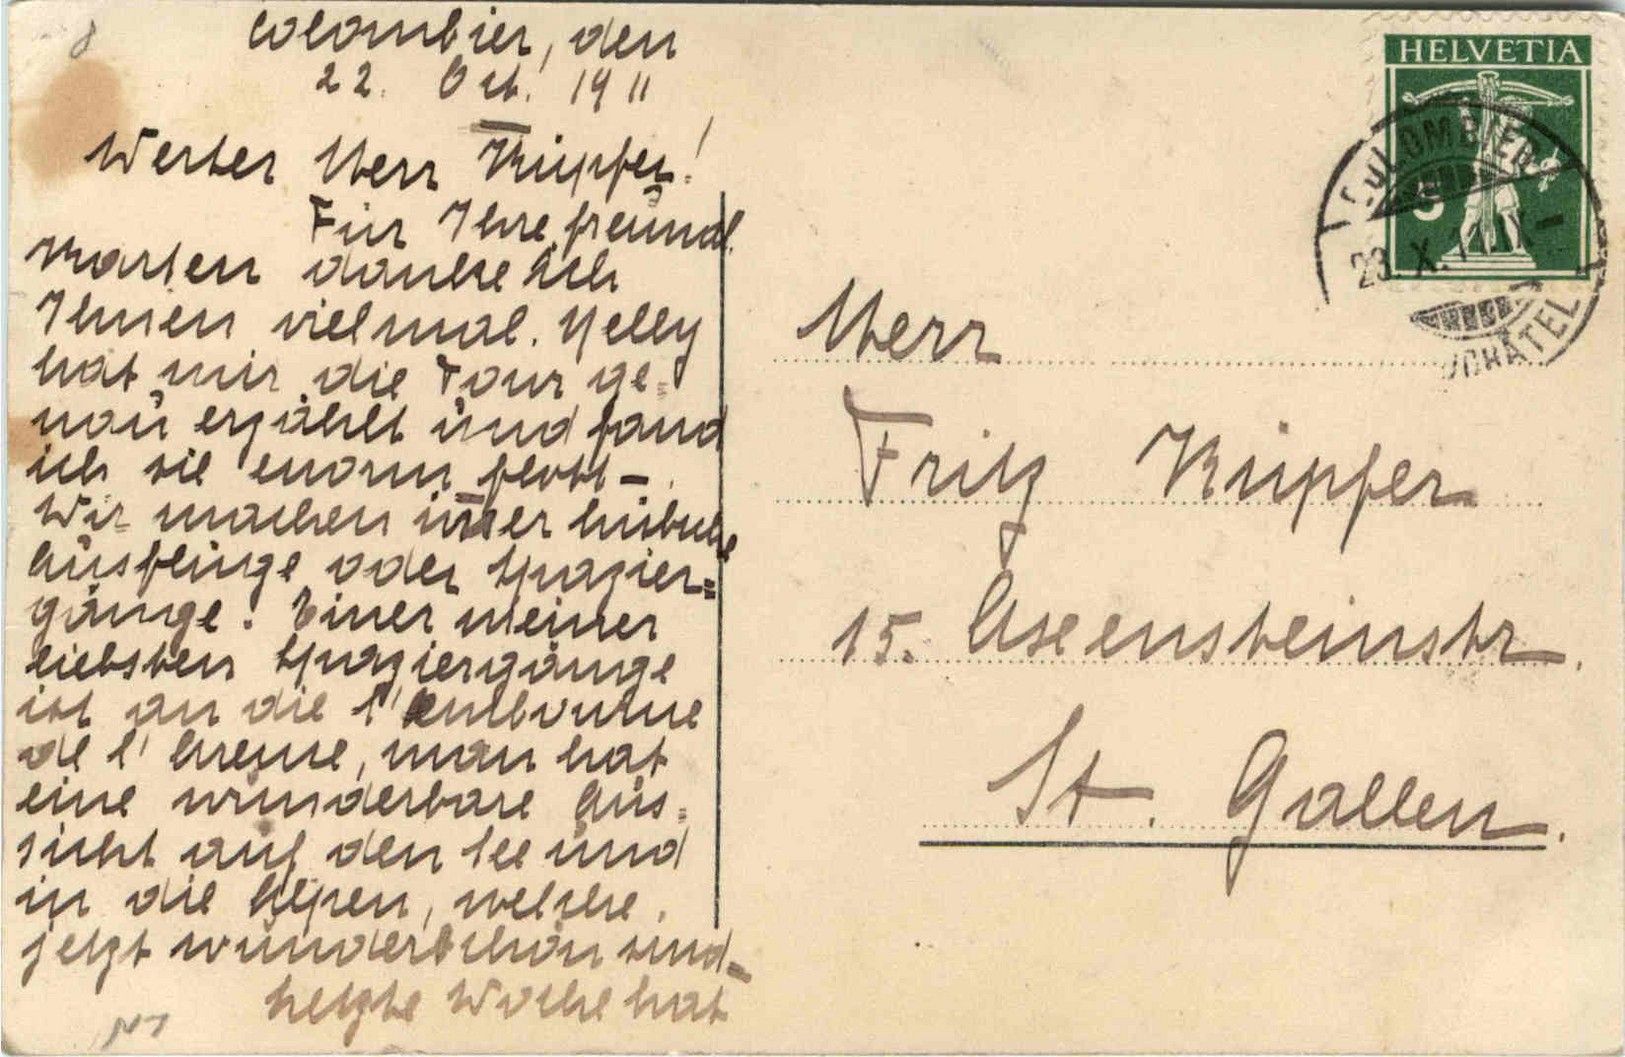 Colombier, den
22. Oct. 1911
Werter Herr Küpfer!
Für Ihre freundl.
Karten danke ich
Ihnen vielmal. Nelly
hat mir die Tour ge-
nau erzählt und fand
ich sie enorm flott –
Wir machen immer hübsche
Ausflüge oder Spazier=
gänge. Einer meiner
liebsten Spaziergänge
ist an die l'embouchure
de l'Areuse, man hat
eine wunderbare Aus=
sicht auf den See und
in die Alpen, welche
jetzt wunderschön sind –
Letzte Woche hat
HELVETIA
COLOMBIER
Herr
Fritz Küpfer
15. Axensteinstr.
St. Gallen.